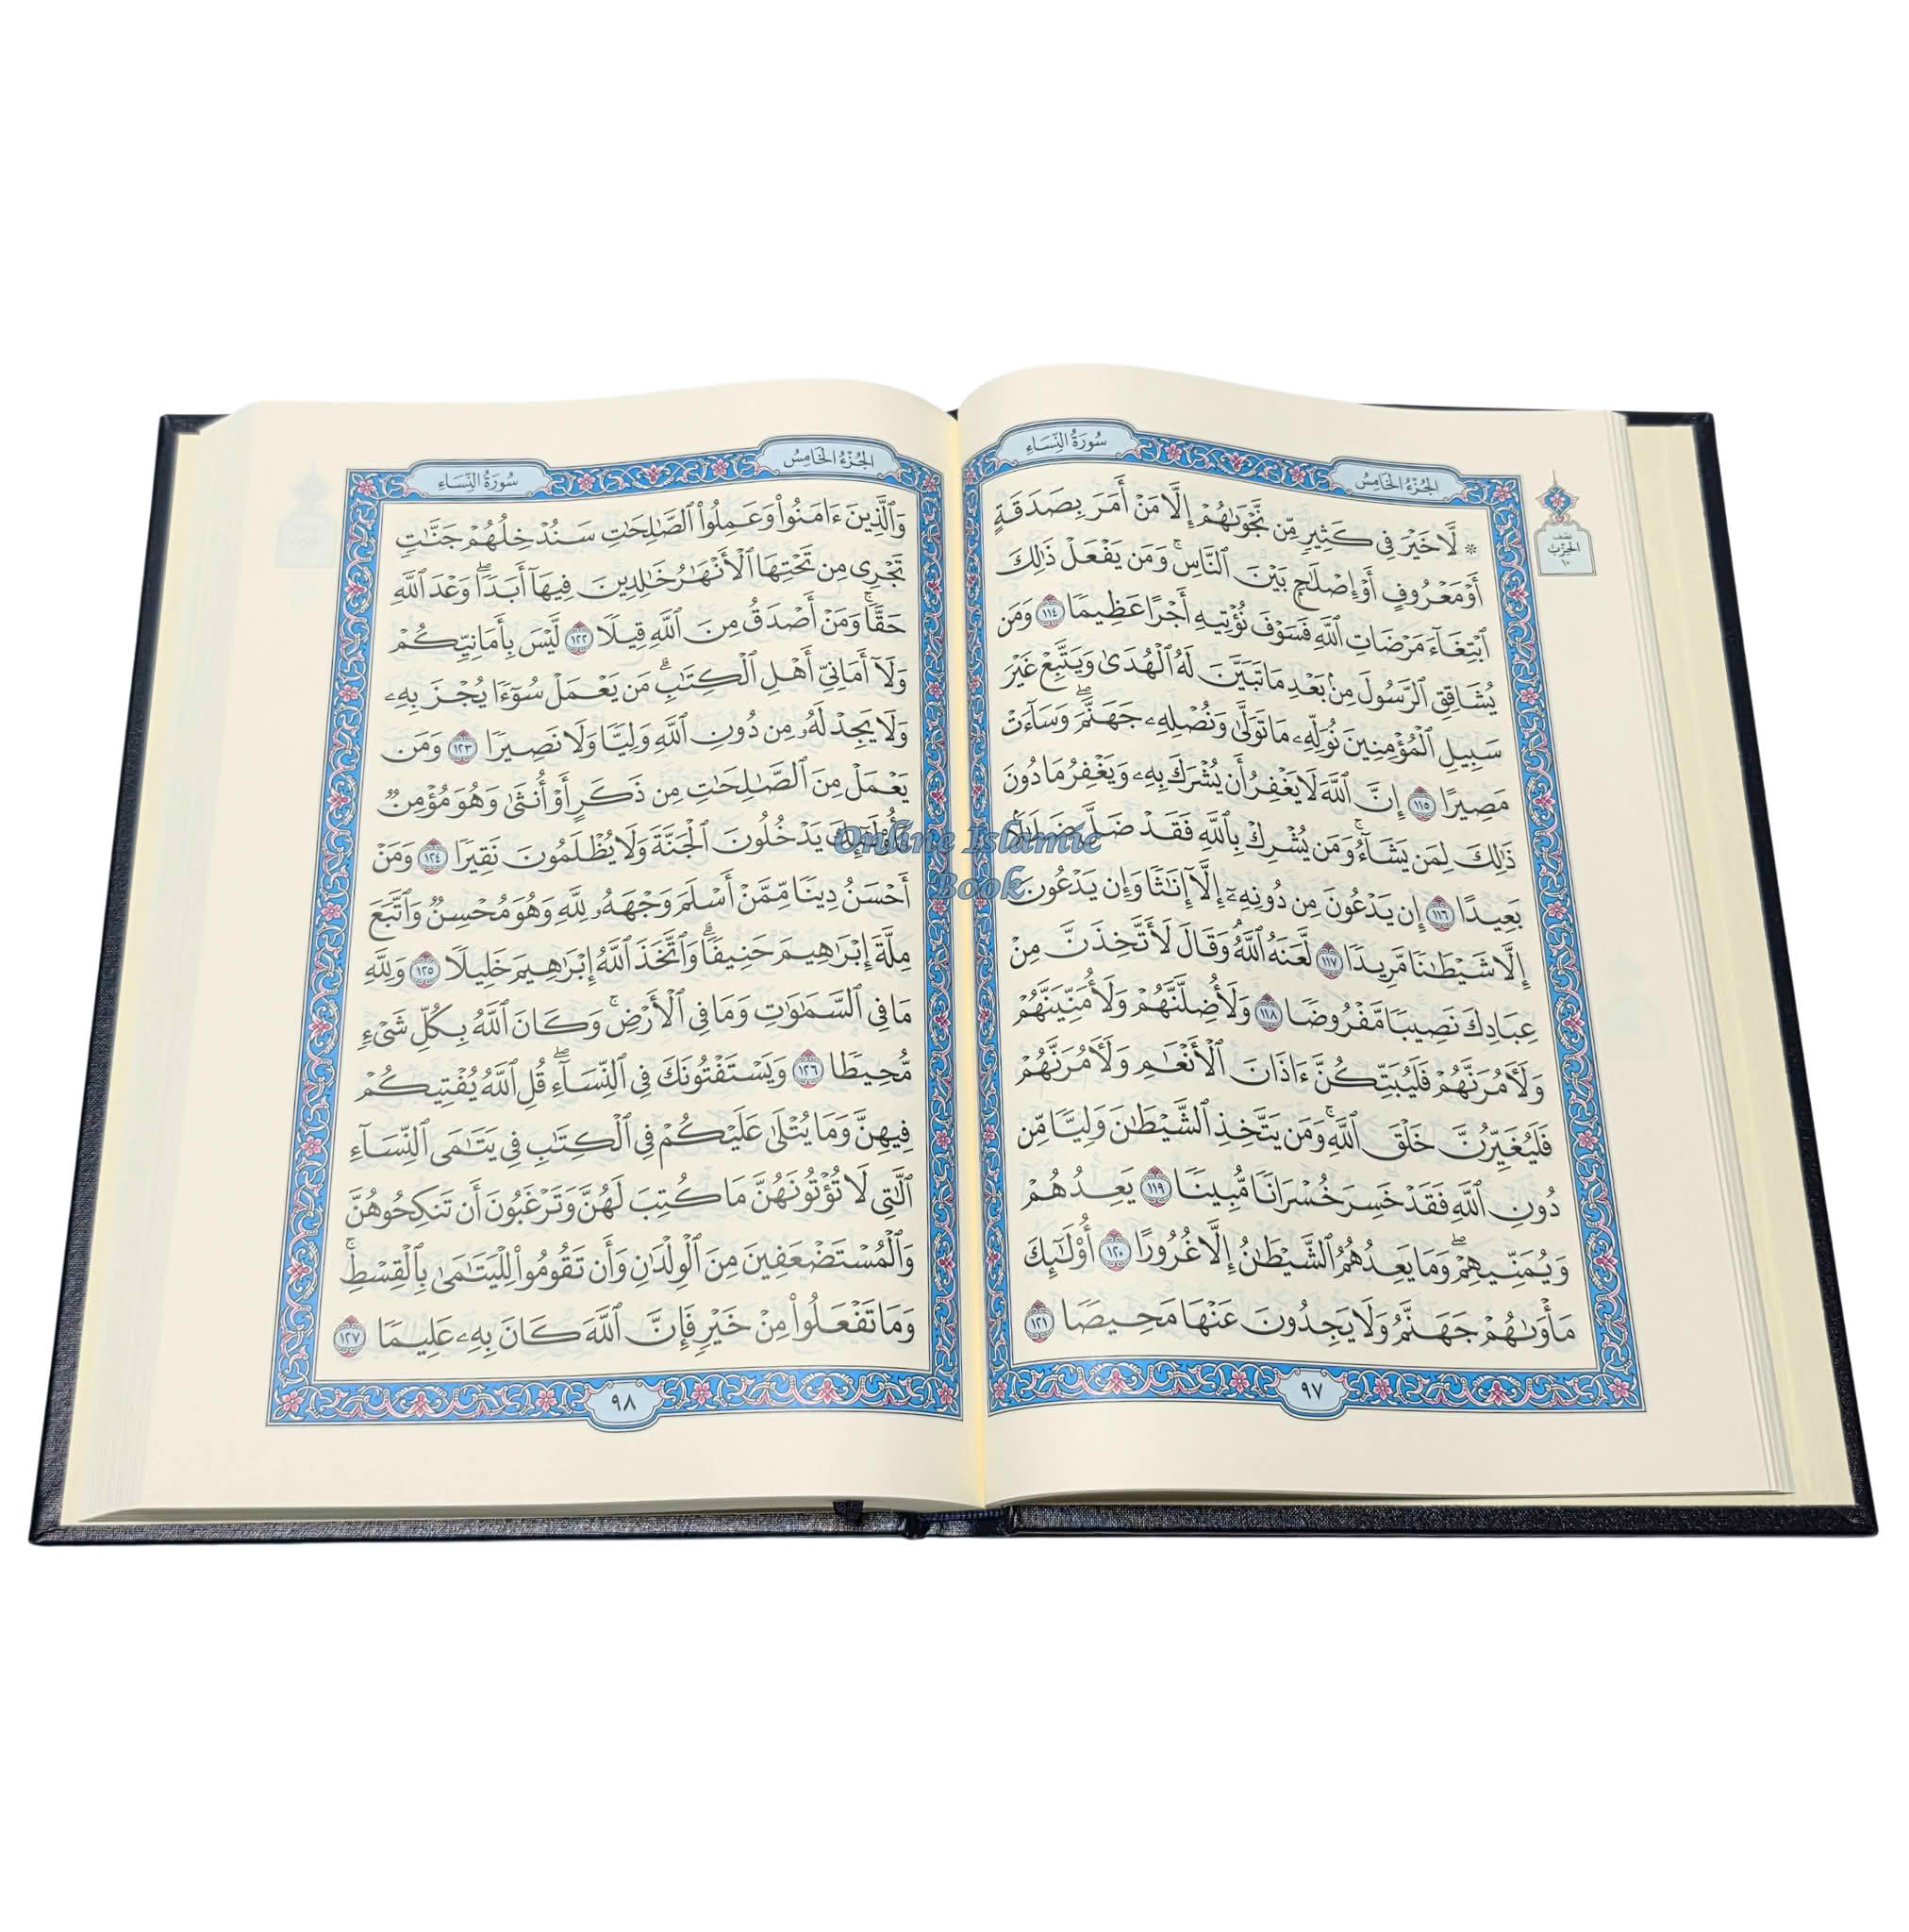 الجزء الخامس
سورة النساء
نصف
الحزب
١٠
* لَّا خَيْرَ فِي كَثِيرٍ مِّن نَّجْوَىٰهُمْ إِلَّا مَنْ أَمَرَ بِصَدَقَةٍ
أَوْ مَعْرُوفٍ أَوْ إِصْلَٰحٍۭ بَيْنَ ٱلنَّاسِۚ وَمَن يَفْعَلْ ذَٰلِكَ
ٱبْتِغَآءَ مَرْضَاتِ ٱللَّهِ فَسَوْفَ نُؤْتِيهِ أَجْرًا عَظِيمًا ١١٤ وَمَن
يُشَاقِقِ ٱلرَّسُولَ مِنۢ بَعْدِ مَا تَبَيَّنَ لَهُ ٱلْهُدَىٰ وَيَتَّبِعْ غَيْرَ
سَبِيلِ ٱلْمُؤْمِنِينَ نُوَلِّهِۦ مَا تَوَلَّىٰ وَنُصْلِهِۦ جَهَنَّمَۖ وَسَآءَتْ
مَصِيرًا ١١٥ إِنَّ ٱللَّهَ لَا يَغْفِرُ أَن يُشْرَكَ بِهِۦ وَيَغْفِرُ مَا دُونَ
ذَٰلِكَ لِمَن يَشَآءُۚ وَمَن يُشْرِكْ بِٱللَّهِ فَقَدْ ضَلَّ ضَلَٰلًۢا
بَعِيدًا ١١٦ إِن يَدْعُونَ مِن دُونِهِۦٓ إِلَّآ إِنَٰثًا وَإِن يَدْعُونَ
إِلَّا شَيْطَٰنًا مَّرِيدًا ١١٧ لَّعَنَهُ ٱللَّهُۘ وَقَالَ لَأَتَّخِذَنَّ مِنْ
عِبَادِكَ نَصِيبًا مَّفْرُوضًا ١١٨ وَلَأُضِلَّنَّهُمْ وَلَأُمَنِّيَنَّهُمْ
وَلَـَٔامُرَنَّهُمْ فَلَيُبَتِّكُنَّ ءَاذَانَ ٱلْأَنْعَٰمِ وَلَـَٔامُرَنَّهُمْ
فَلَيُغَيِّرُنَّ خَلْقَ ٱللَّهِۚ وَمَن يَتَّخِذِ ٱلشَّيْطَٰنَ وَلِيًّا مِّن
دُونِ ٱللَّهِ فَقَدْ خَسِرَ خُسْرَانًا مُّبِينًا ١١٩ يَعِدُهُمْ
وَيُمَنِّيهِمْۖ وَمَا يَعِدُهُمُ ٱلشَّيْطَٰنُ إِلَّا غُرُورًا ١٢٠ أُو۟لَٰٓئِكَ
مَأْوَىٰهُمْ جَهَنَّمُ وَلَا يَجِدُونَ عَنْهَا مَحِيصًا ١٢١
٩٧
الجزء الخامس
سورة النساء
وَٱلَّذِينَ ءَامَنُوا۟ وَعَمِلُوا۟ ٱلصَّٰلِحَٰتِ سَنُدْخِلُهُمْ جَنَّٰتٍ
تَجْرِي مِن تَحْتِهَا ٱلْأَنْهَٰرُ خَٰلِدِينَ فِيهَآ أَبَدًاۖ وَعْدَ ٱللَّهِ
حَقًّاۚ وَمَنْ أَصْدَقُ مِنَ ٱللَّهِ قِيلًا ١٢٢ لَّيْسَ بِأَمَانِيِّكُمْ
وَلَآ أَمَانِيِّ أَهْلِ ٱلْكِتَٰبِۗ مَن يَعْمَلْ سُوٓءًا يُجْزَ بِهِۦ
وَلَا يَجِدْ لَهُۥ مِن دُونِ ٱللَّهِ وَلِيًّا وَلَا نَصِيرًا ١٢٣ وَمَن
يَعْمَلْ مِنَ ٱلصَّٰلِحَٰتِ مِن ذَكَرٍ أَوْ أُنثَىٰ وَهُوَ مُؤْمِنٌ
فَأُو۟لَٰٓئِكَ يَدْخُلُونَ ٱلْجَنَّةَ وَلَا يُظْلَمُونَ نَقِيرًا ١٢٤ وَمَنْ
أَحْسَنُ دِينًا مِّمَّنْ أَسْلَمَ وَجْهَهُۥ لِلَّهِ وَهُوَ مُحْسِنٌ وَٱتَّبَعَ
مِلَّةَ إِبْرَٰهِيمَ حَنِيفًاۗ وَٱتَّخَذَ ٱللَّهُ إِبْرَٰهِيمَ خَلِيلًا ١٢٥ وَلِلَّهِ
مَا فِي ٱلسَّمَٰوَٰتِ وَمَا فِي ٱلْأَرْضِۚ وَكَانَ ٱللَّهُ بِكُلِّ شَيْءٍ
مُّحِيطًا ١٢٦ وَيَسْتَفْتُونَكَ فِي ٱلنِّسَآءِۖ قُلِ ٱللَّهُ يُفْتِيكُمْ
فِيهِنَّ وَمَا يُتْلَىٰ عَلَيْكُمْ فِي ٱلْكِتَٰبِ فِي يَتَٰمَى ٱلنِّسَآءِ
ٱلَّٰتِي لَا تُؤْتُونَهُنَّ مَا كُتِبَ لَهُنَّ وَتَرْغَبُونَ أَن تَنكِحُوهُنَّ
وَٱلْمُسْتَضْعَفِينَ مِنَ ٱلْوِلْدَٰنِ وَأَن تَقُومُوا۟ لِلْيَتَٰمَىٰ بِٱلْقِسْطِۚ
وَمَا تَفْعَلُوا۟ مِنْ خَيْرٍ فَإِنَّ ٱللَّهَ كَانَ بِهِۦ عَلِيمًا ١٢٧
٩٨
Online Islamic
Book